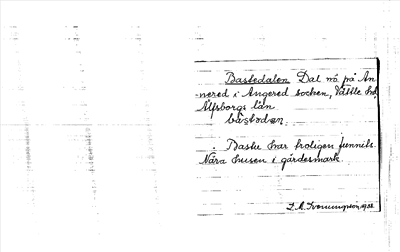 Bastedalen Dal nö på An
nered i Angered socken, Vättle hd,
Älfsborgs län
båstadən
Bastu har troligen funnits.
Nära husen i gärdesmark